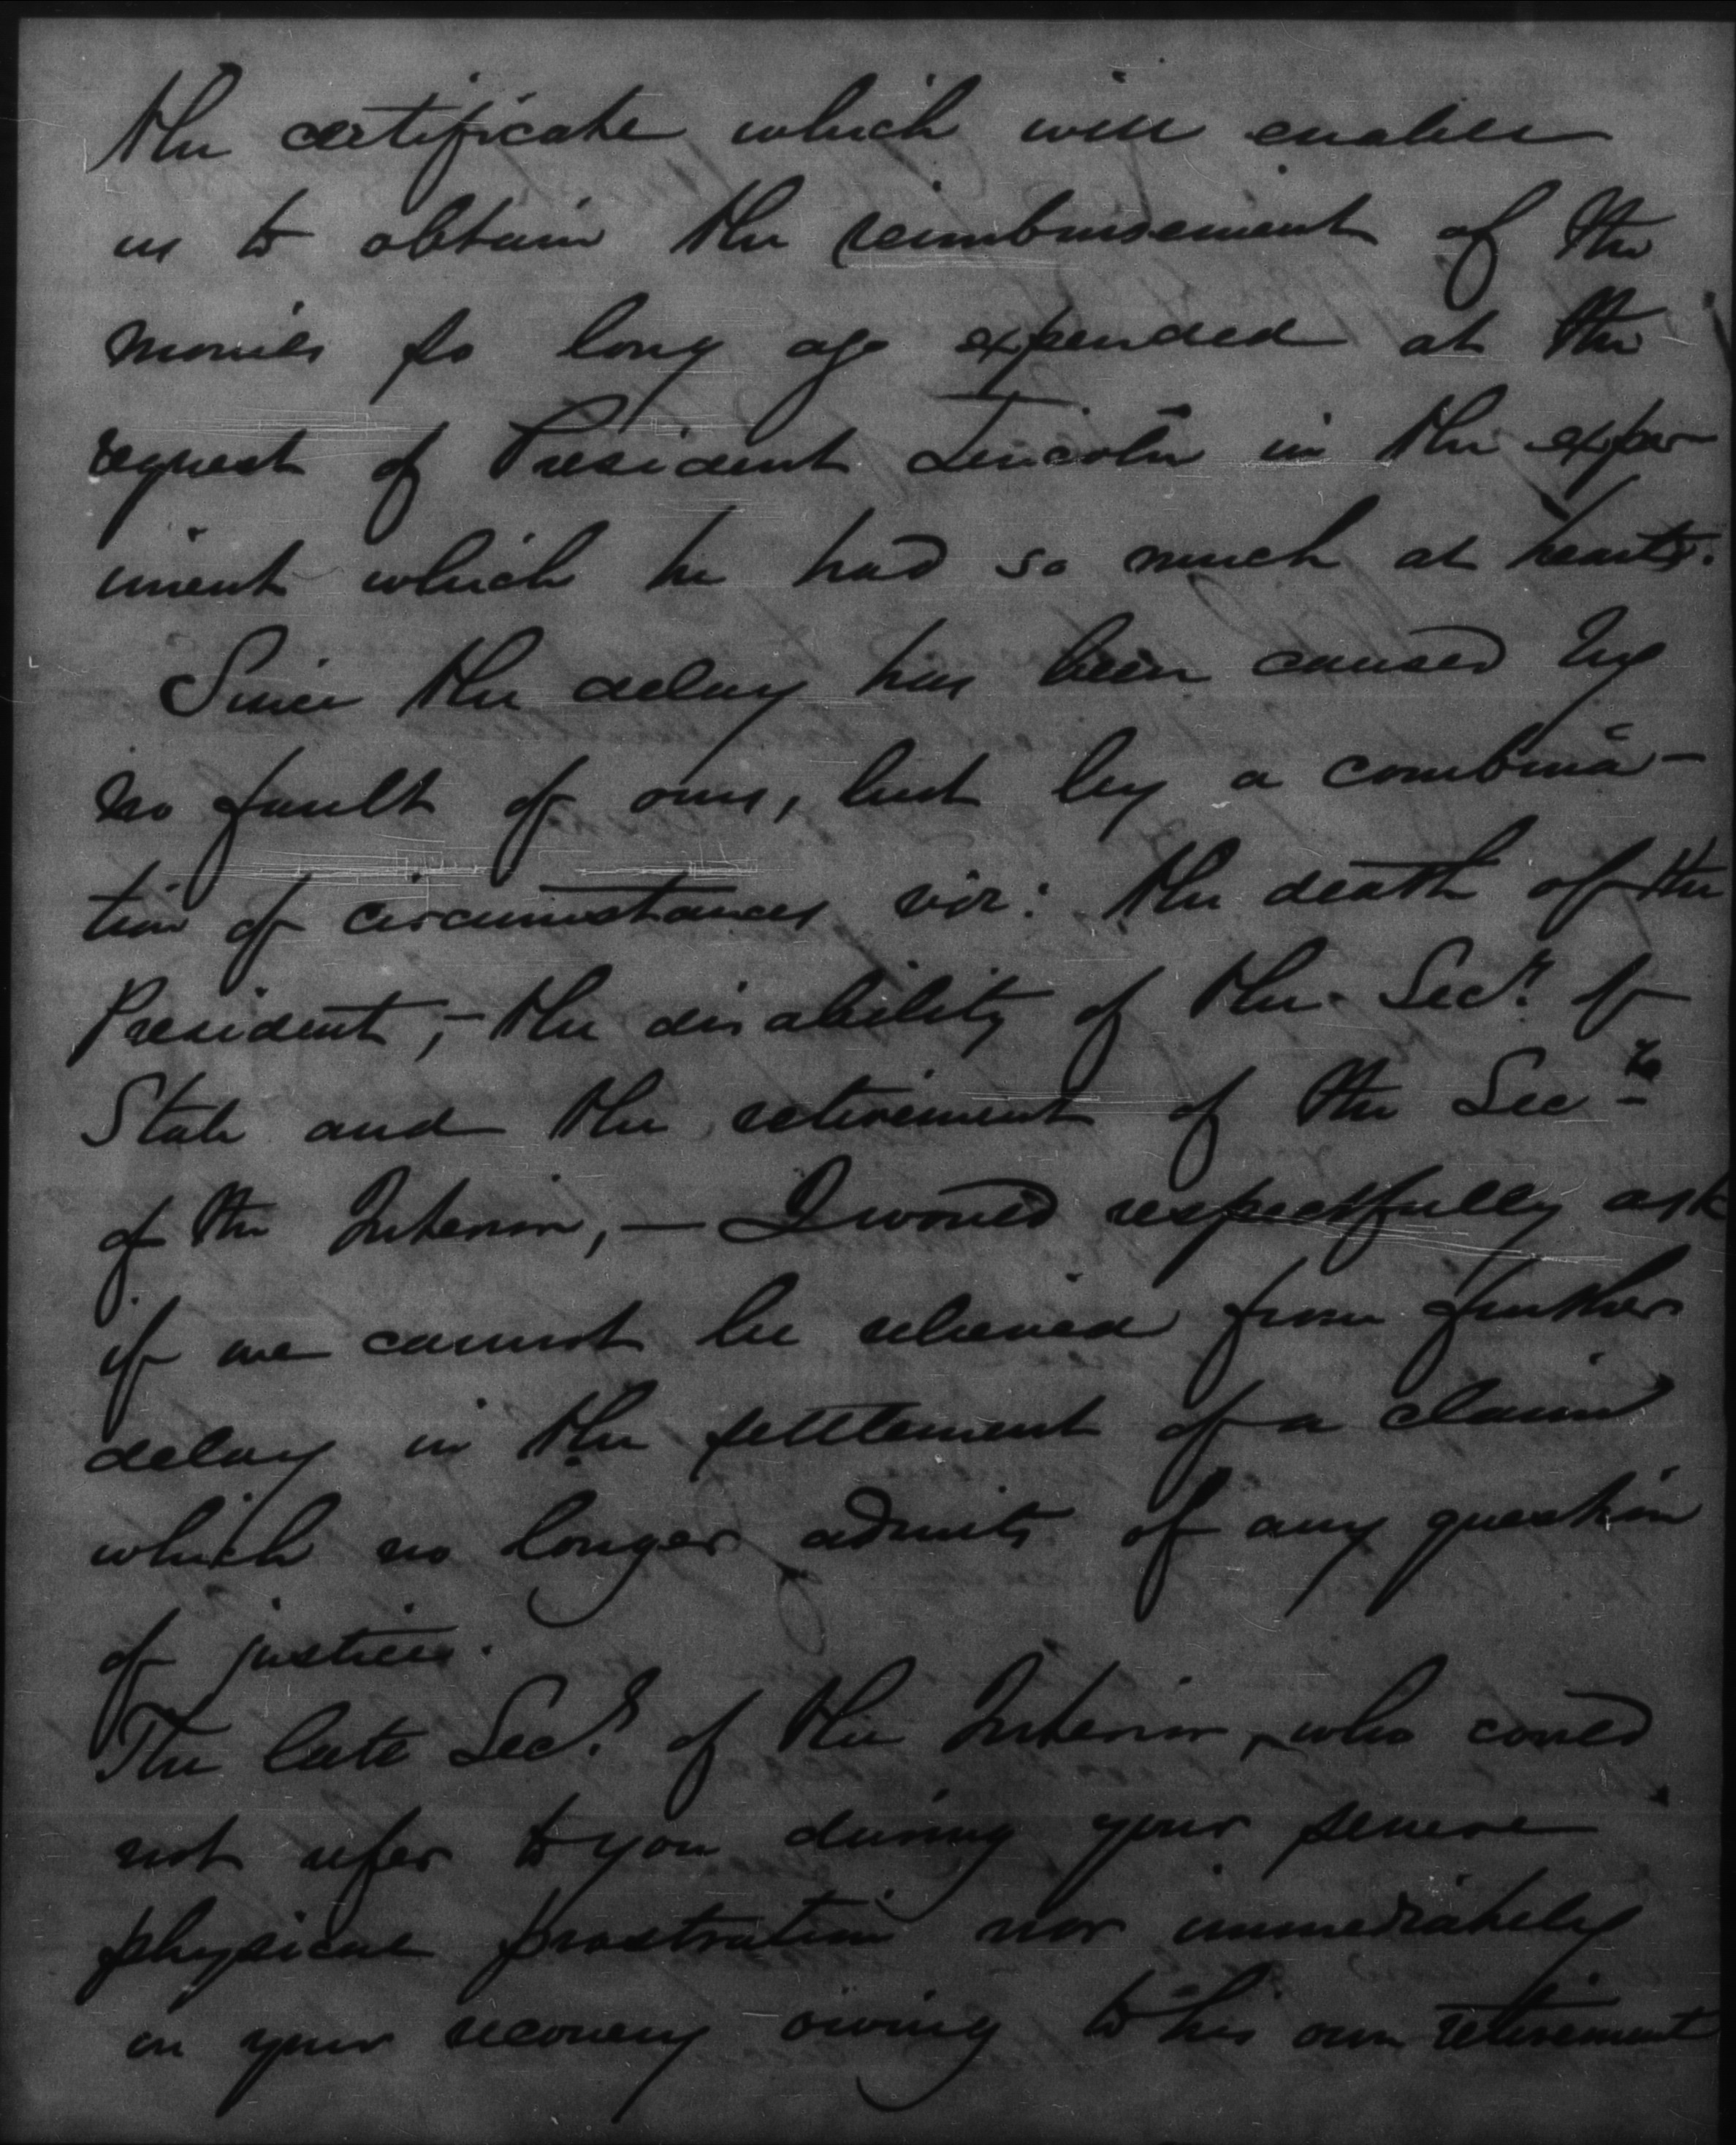 the certificate which will enable
us to obtain the reimbursement of the
monies so long ago expended at the
request of President Lincoln in the exper
iment which he had so much at heart.
Since the delay has been caused by
no fault of ours, but by a combina-
tion of circumstances viz: the death of the
President,- the disability of the Secy. of
State and the retirement of the Secy
of the Interior, — I would respectfully ask
if we cannot be relieved from further
delay in the settlement of a claim
which no longer admits of any question
of justice.
The late Secy. of the Interior, who could
not refer to you during your severe
physical prostration nor immediately
on your recovery owing to his own retirement